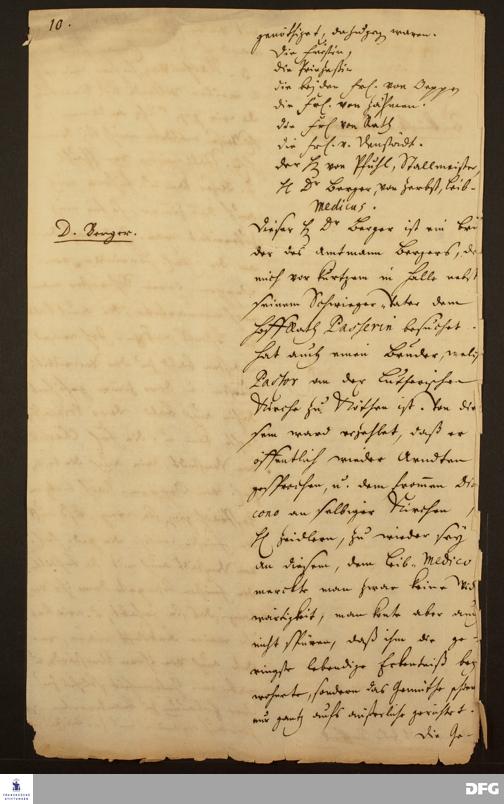 10.
genöthiget, dazumahl waren.
die Fürstin,
die Prinzessin
die beyden Frl. von Oeppy
die Frl. von Zähmen.
die Frl. von Rath
die Frl. v. Venstädt.
der H. von Pfuhl, Stallmeister,
H. Dr Berger, von Zerbst, Leib-
Medicus.
D. Berger.
Dieser H. Dr Berger ist ein Bru
der des Amtmann Bergers, de
mich vor kurtzem in Halle nebst
seinem Schwieger-Vater dem
Hoff Rath Passerin besuchet.
hat auch einen Bruder, welch
Pastor an der Lutherischen
Kirche zu Köthen ist. Von die
sem ward erzehlet, daß er
öffentlich wieder Arndten
gesprochen, u. dem frommen Dia
cono an selbiger Kirchen,
H. Zeidlern, zu wieder sey
an diesem, dem Leib-Medico
merckte man zwar keine Wid
wärtigkeit, man konte aber auch
nicht spüren, daß ihm die ge-
ringste lebendige Erkentniß bey
wohnete, sondern das Gemüthe schien
nur gantz aufs äuserliche gerichtet.
Die Ge-
FRANCKESCHE
STIFTUNGEN
DFG